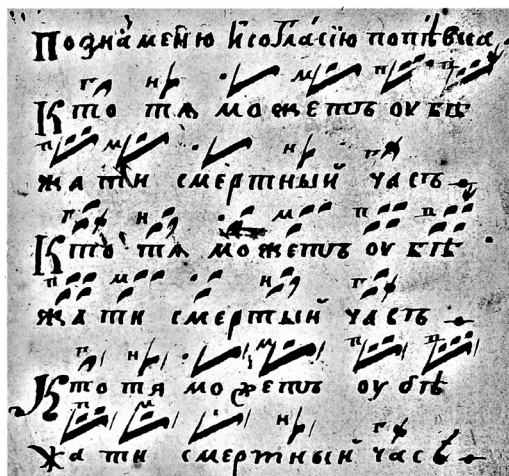 Познамениѭ исогласїю попѣвка
Кто тѧ можетъ оубѣ
жати смертный часъ
Кто тѧ можетъ оубѣ
жати смертый часъ
Кто тя можетъ оу бѣ
жати смертный часъ